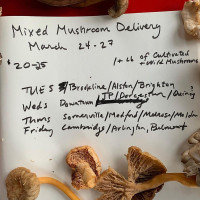 Mixed Mushroom Delivery
March 24-27
$20-25
1+ lb of Cultivated
+ Wild Mushrooms
TUES Brookline/Alston/Brighton
Weds Downtown/JP/Dorchester/Quincy?
Thurs Somerville/Medford/Melrose/Malden
Friday Cambridge/Arlington, Belmont